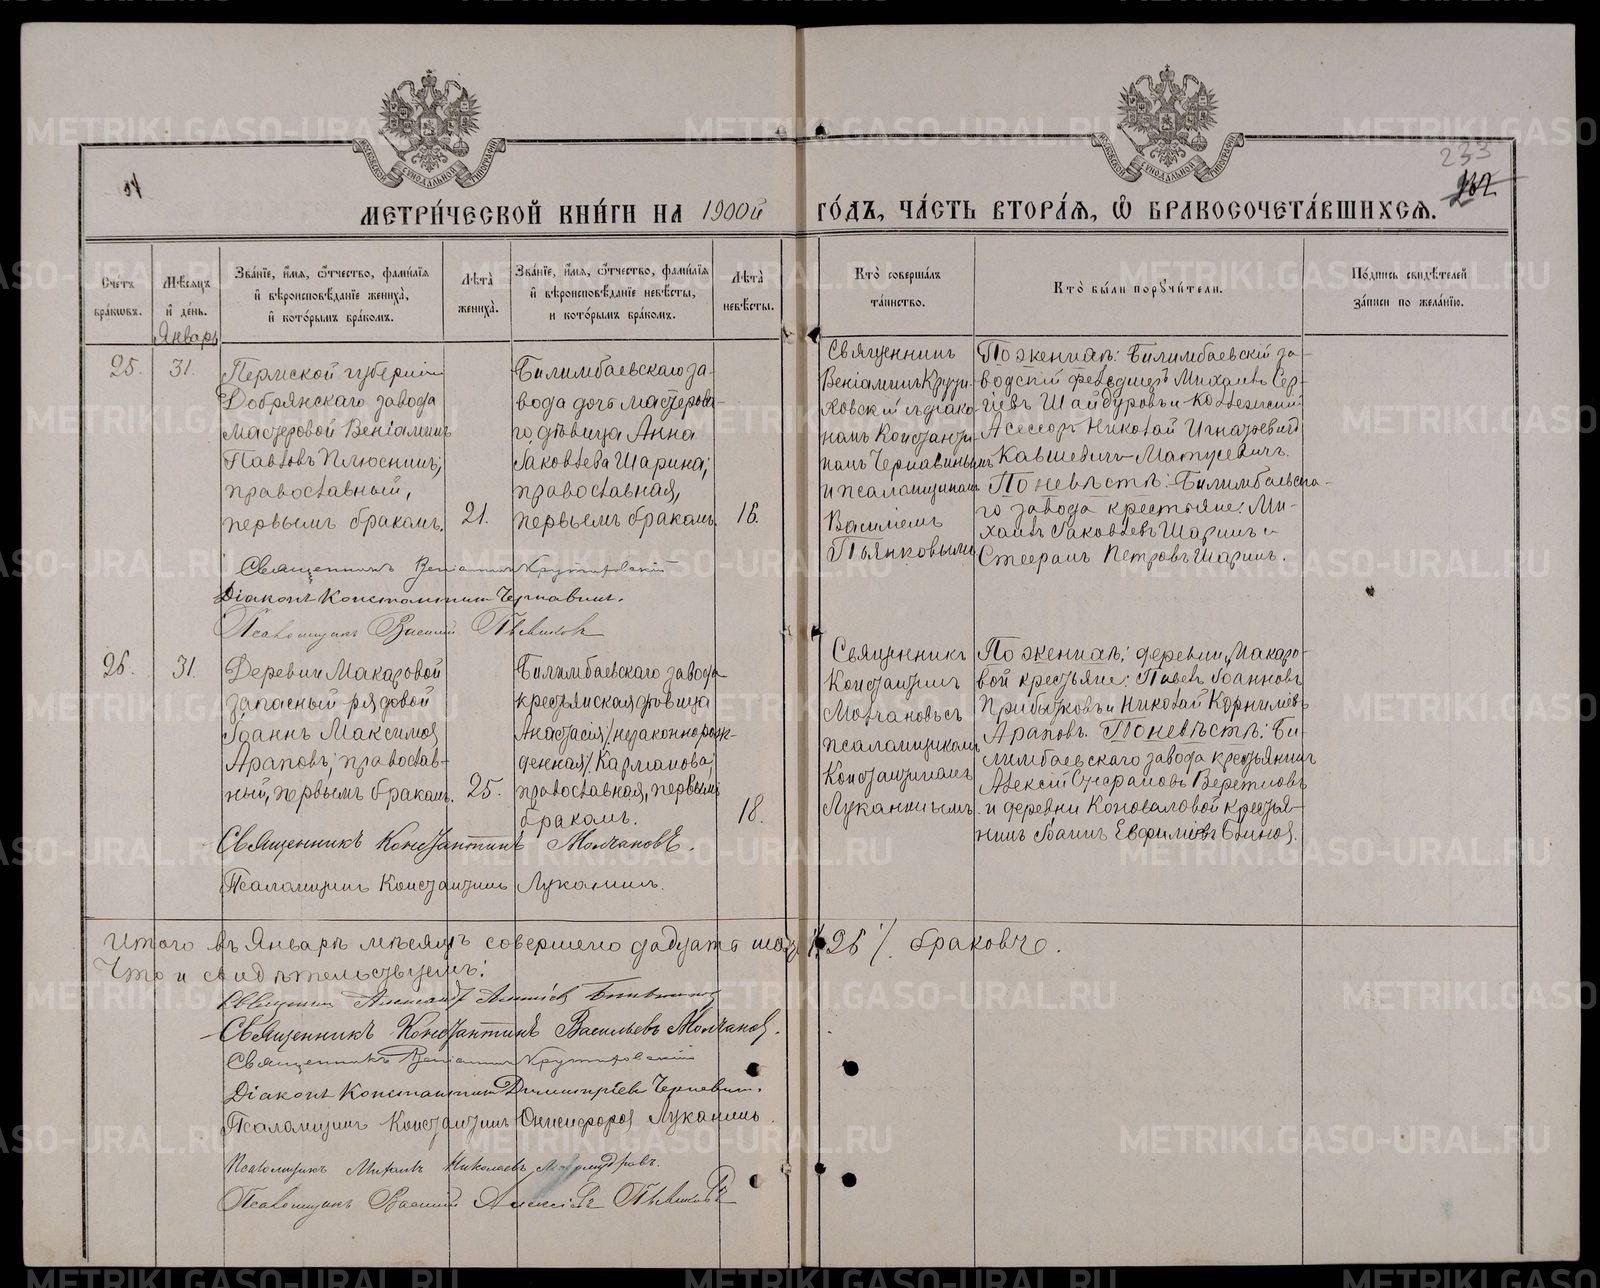 МЕТРИ́ЧЕСКОЙ КНИ́ГИ НА 1900й ГО́ДЪ, ЧА́СТЬ ВТОРА́Я, Ѡ҆ БРАКОСОЧЕТА́ВШИХСЯ.
233
Сче́тъ бра́кѡвъ.
Мѣ́сяцъ и҆ де́нь.
Зва́нїе, и҆́мя, ѻ҆́тчество, фами́лїя и҆ вѣроисповѣ́данїе жениха̀, и҆ кото́рымъ бра́комъ.
Лѣ́та̀ жениха̀.
Зва́нїе, и҆́мя, ѻ҆́тчество, фами́лїя и҆ вѣроисповѣ́данїе невѣ́сты, и кото́рымъ бра́комъ.
Лѣ́та̀ невѣ́сты.
Кто̀ соверша́лъ та́инство.
Кто̀ бы́ли порꙋчи́тели.
По́дпись свидѣ́телей за́писи по жела́нїю.
Январь
25.
31.
Пермской губернiи
Добрянскаго завода
мастеровой Венiаминъ
Павловъ Плюснинъ,
православный,
первымъ бракомъ.
21.
Билимбаевскаго за-
вода дочь мастерова-
го, дѣвица Анна
Iаковлева Шарина;
православная,
первымъ бракомъ.
16.
Священникъ
Венiаминъ Крути-
ховскiй съ дiако-
номъ Константи-
номъ Чернавинымъ
и псаломщикомъ
Василiемъ
Пьянковымъ
По женихѣ: Билимбаевскiй за-
водскiй фельдшеръ Михаилъ Сер-
гiевъ Шайдуровъ и Коллежскiй
Асессоръ Николай Игнатьевичъ
Кавшевичъ-Матусевичъ.
По невѣстѣ: Билимбаевска-
го завода крестьяне: Ми-
хаилъ Iаковлевъ Шаринъ и
Петровъ Шаринъ.
Священникъ Венiаминъ Крутиховскiй
Дiаконъ Константинъ Чернавинъ.
Псаломщикъ Василiй Пьянковъ
26.
31.
Деревни Макаровой
запасный рядовой
Iоаннъ Максимовъ
Араповъ, православ-
ный, первымъ бракомъ.
25.
Билимбаевскаго завода
крестьянская дѣвица
Анастасiя /незаконнорож-
денная/ Карманова,
православная, первымъ
бракомъ.
18.
Священникъ
Константинъ
Молчановъ съ
псаломщикомъ
Константиномъ
Луканинымъ
По женихѣ: деревни Макаро-
вой крестьяне: Павелъ Iоанновъ
Прибытковъ и Николай Корнилiевъ
Араповъ. По невѣстѣ: Би-
лимбаевскаго завода крестьянинъ
Алексiй Веретновъ
и деревни Коноваловой крестья-
нинъ Iоаннъ Евфимiевъ Блиновъ.
Священникъ Константинъ Молчановъ.
Псаломщикъ Константинъ Луканинъ.
Итого въ Январѣ мѣсяцѣ совершено двадцать шесть /26/ браковъ.
Что и свидѣтельствуемъ:
Священникъ Александръ
Священникъ Константинъ Васильевъ Молчановъ.
Священникъ Венiаминъ Крутиховскiй
Дiаконъ Константинъ Димитрiевъ Чернавинъ.
Псаломщикъ Константинъ Онисифоровъ Луканинъ.
Псаломщикъ Михаилъ Николаевъ
Псаломщикъ Василiй Алексiевъ Пьянковъ
METRIKI.GASO-URAL.RU